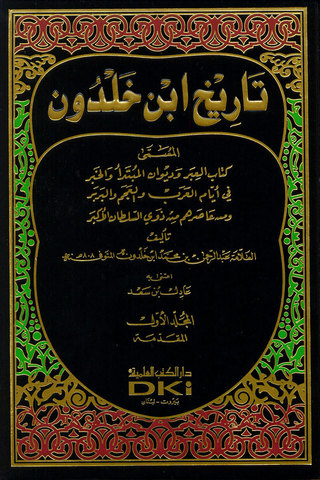 تاريخ ابن خلدون
المسمى
كتاب العبر وديوان المبتدأ والخبر
في أيام العرب والعجم والبربر
ومن عاصرهم من ذوي السلطان الأكبر
تأليف
العلامة عبد الرحمن بن محمد ابن خلدون المتوفى ٨٠٨هـ
اعتنى به
عادل بن سعد
المجلد الأول
المقدمة
دار الكتب العلمية
DKi
بيروت - لبنان